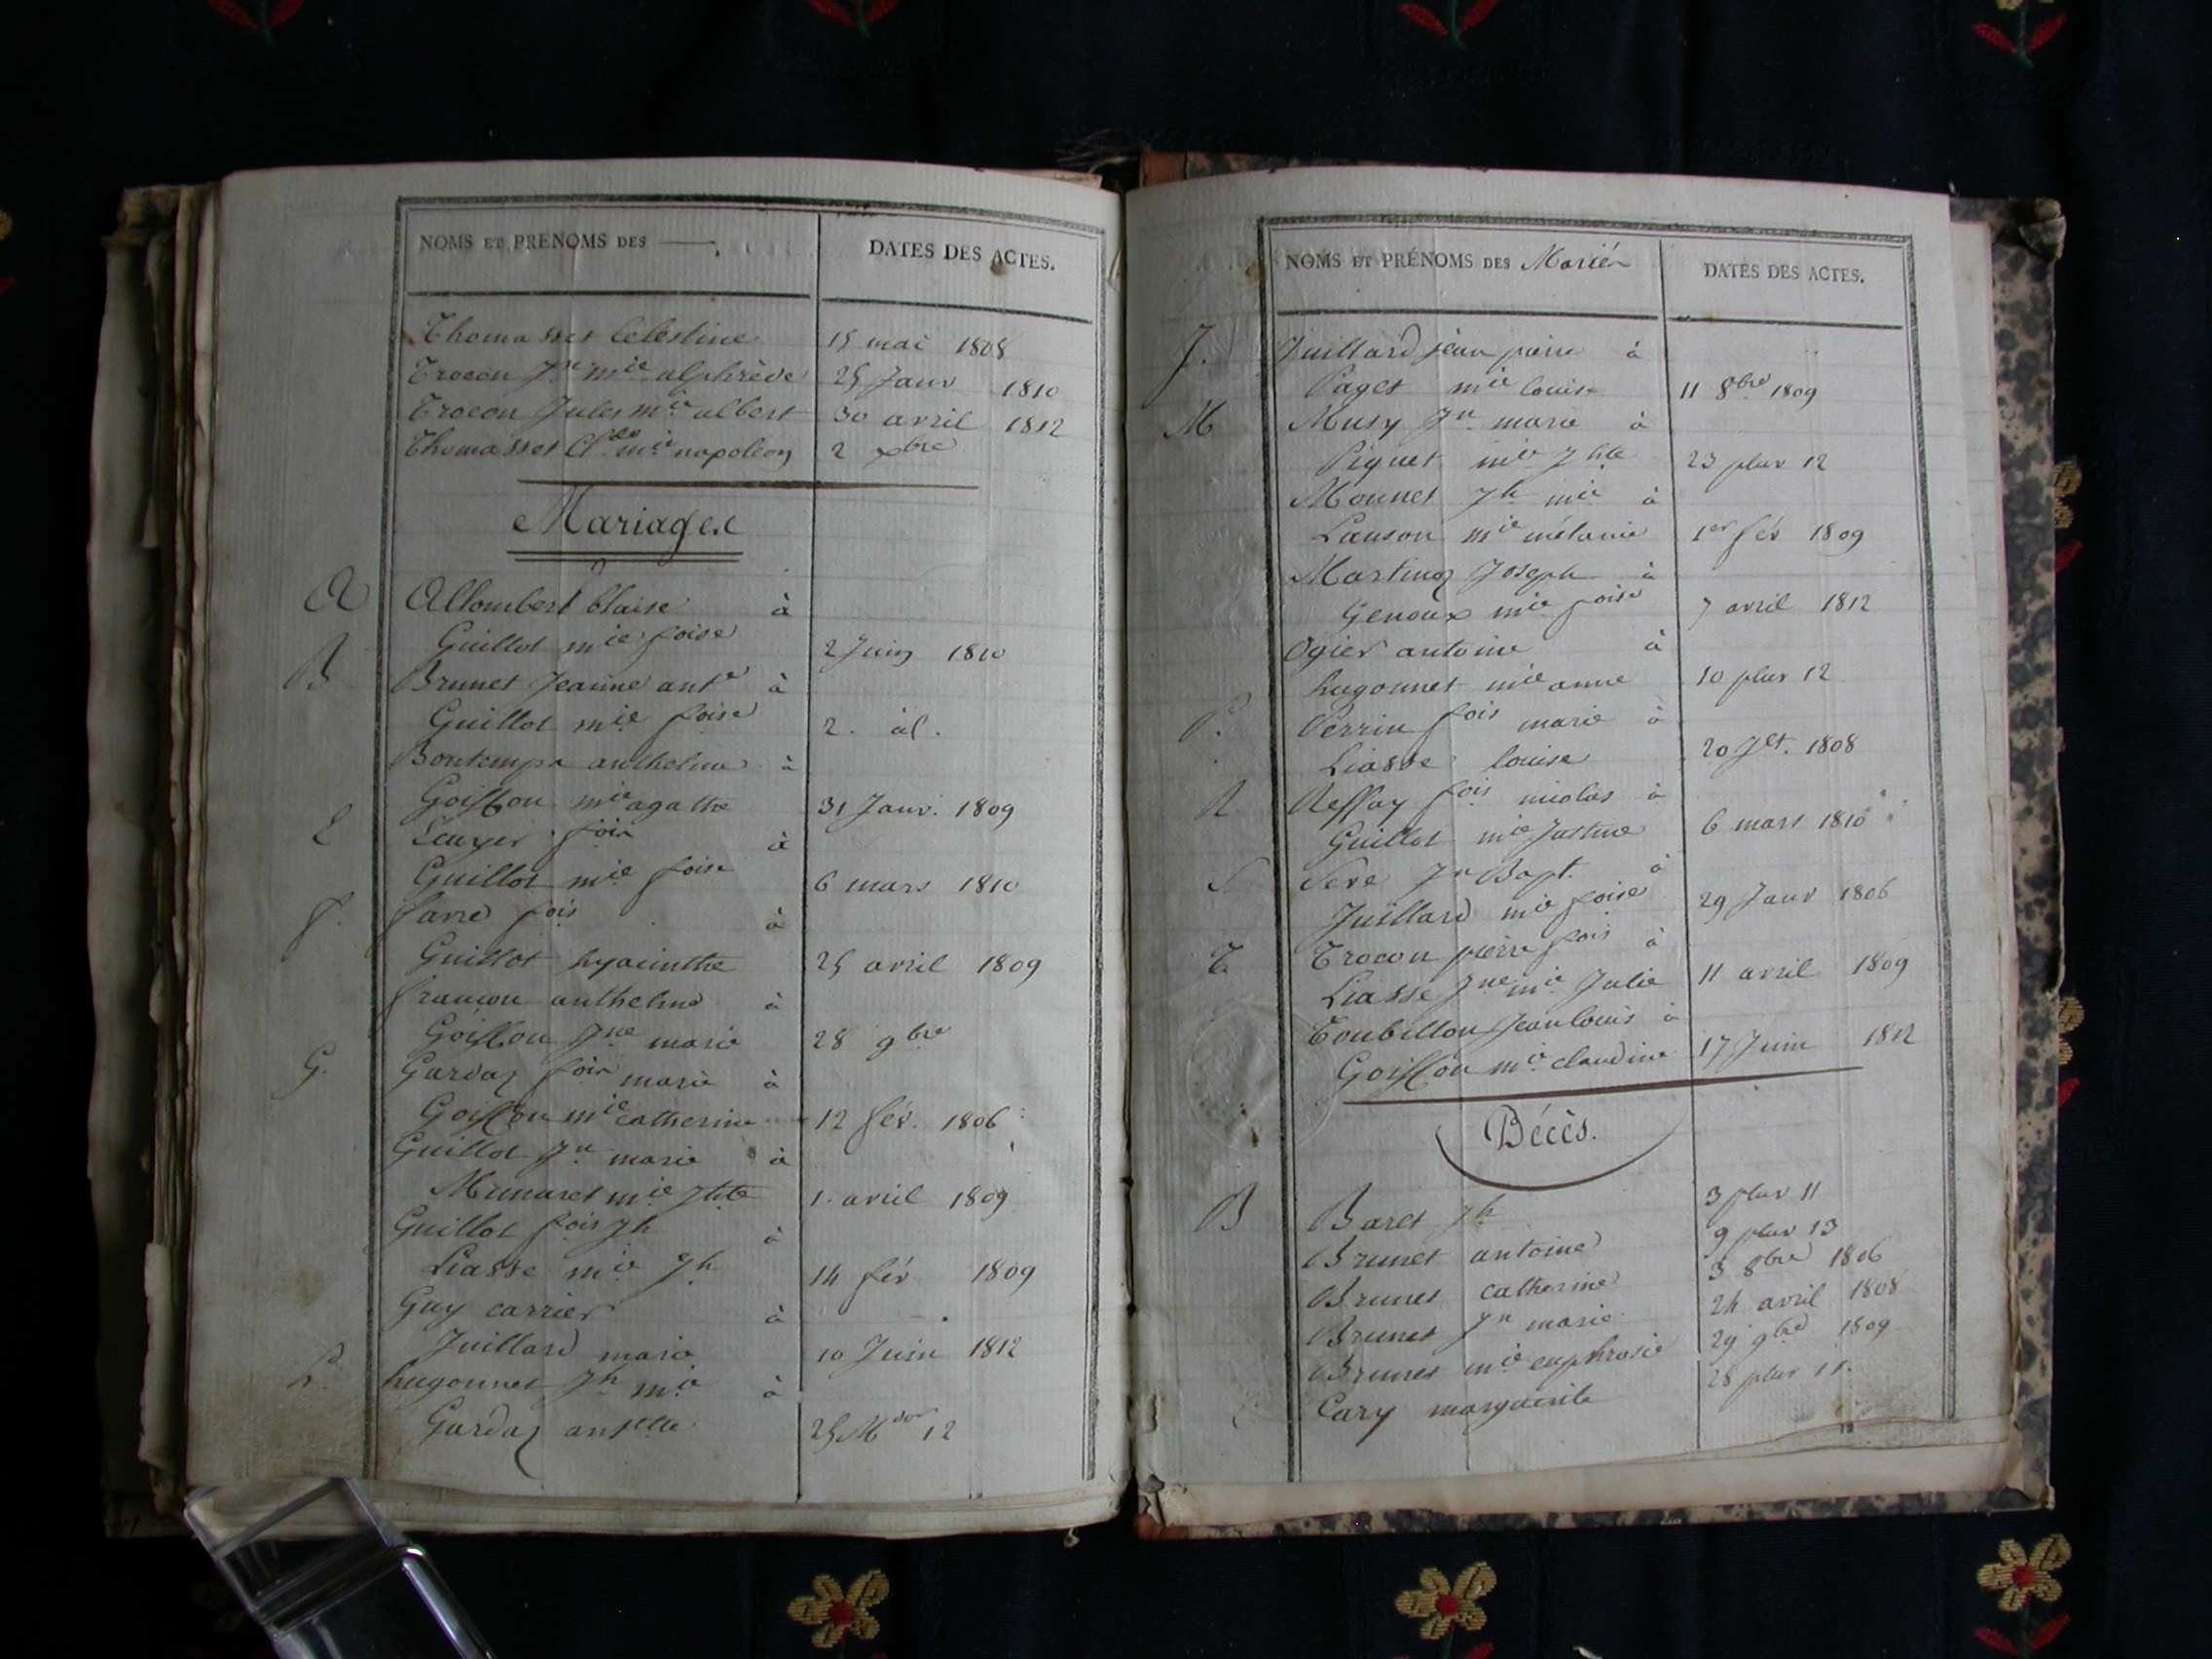 NOMS ET PRENOMS DES —
DATES DES ACTES.
Thomasset Celestine 15 mai 1808
Trocon Jne mie alphrède 25 Janv 1810
Trocon Jules mie albert 30 avril 1812
Thomasset Cl. mie napoléon 2 xbre
Mariages
A Allombert blaise à
Guillot mie foise 2 Juin 1810
B Brunet Jeanne ante à
Guillot mie foise 2. d°.
Bontemps anthelme à
Goiffon mie agathe 31 Janv. 1809
E Ecuyer fois à
Guillot mie foise 6 mars 1810
f. favre fois à
Guillot hyacinthe 25 avril 1809
françon anthelme à
Goiffon Jne marie 28 9bre
G. Gardaz fois marie à
Goiffon mie catherine 12 fév. 1806
Guillot Jn marie à
Munaret mie Jhte 1. avril 1809
Guillot fois Jh à
Liasse mie Jh 14 fév 1809
Guy carrier à
Juillard marie 10 Juin 1812
h hugonnet Jh mie à
Gardaz antte 25 Mdor 12
NOMS ET PRÉNOMS DES Mariés
DATES DES ACTES.
J. Juillard jean pierre à
Paget mie louise 11 8bre 1809
M Musy Jn marie à
Piquet mie Jhte 23 pluv 12
Monnet Jh mie à
Lauson mie mélanie 1er fév 1809
Martinez Joseph à
Genoux mie foise 7 avril 1812
Ogier antoine à
hugonnet mie anne 10 pluv 12
P. Perrin fois marie à
Liasse louise 20 Jet. 1808
R Reffay fois nicolas à
Guillot mie Justine 6 mars 1810
S Seve Jn Bapt. à
Juillard mie foise 29 Janv 1806
T. Trocon pierre fois à
Liasse Jne mie Julie 11 avril 1809
Toubillon Jean louis à
Goiffon mie claudine 17 Juin 1812
Décès.
B Baret Jh 3 pluv 11
Brunet antoine 9 pluv 13
Brunet catherine 3 8bre 1806
Brunet Jn marie 24 avril 1808
Brunet mie euphrasie 29 9bre 1809
C Cary marguerite 28 pluv 11.